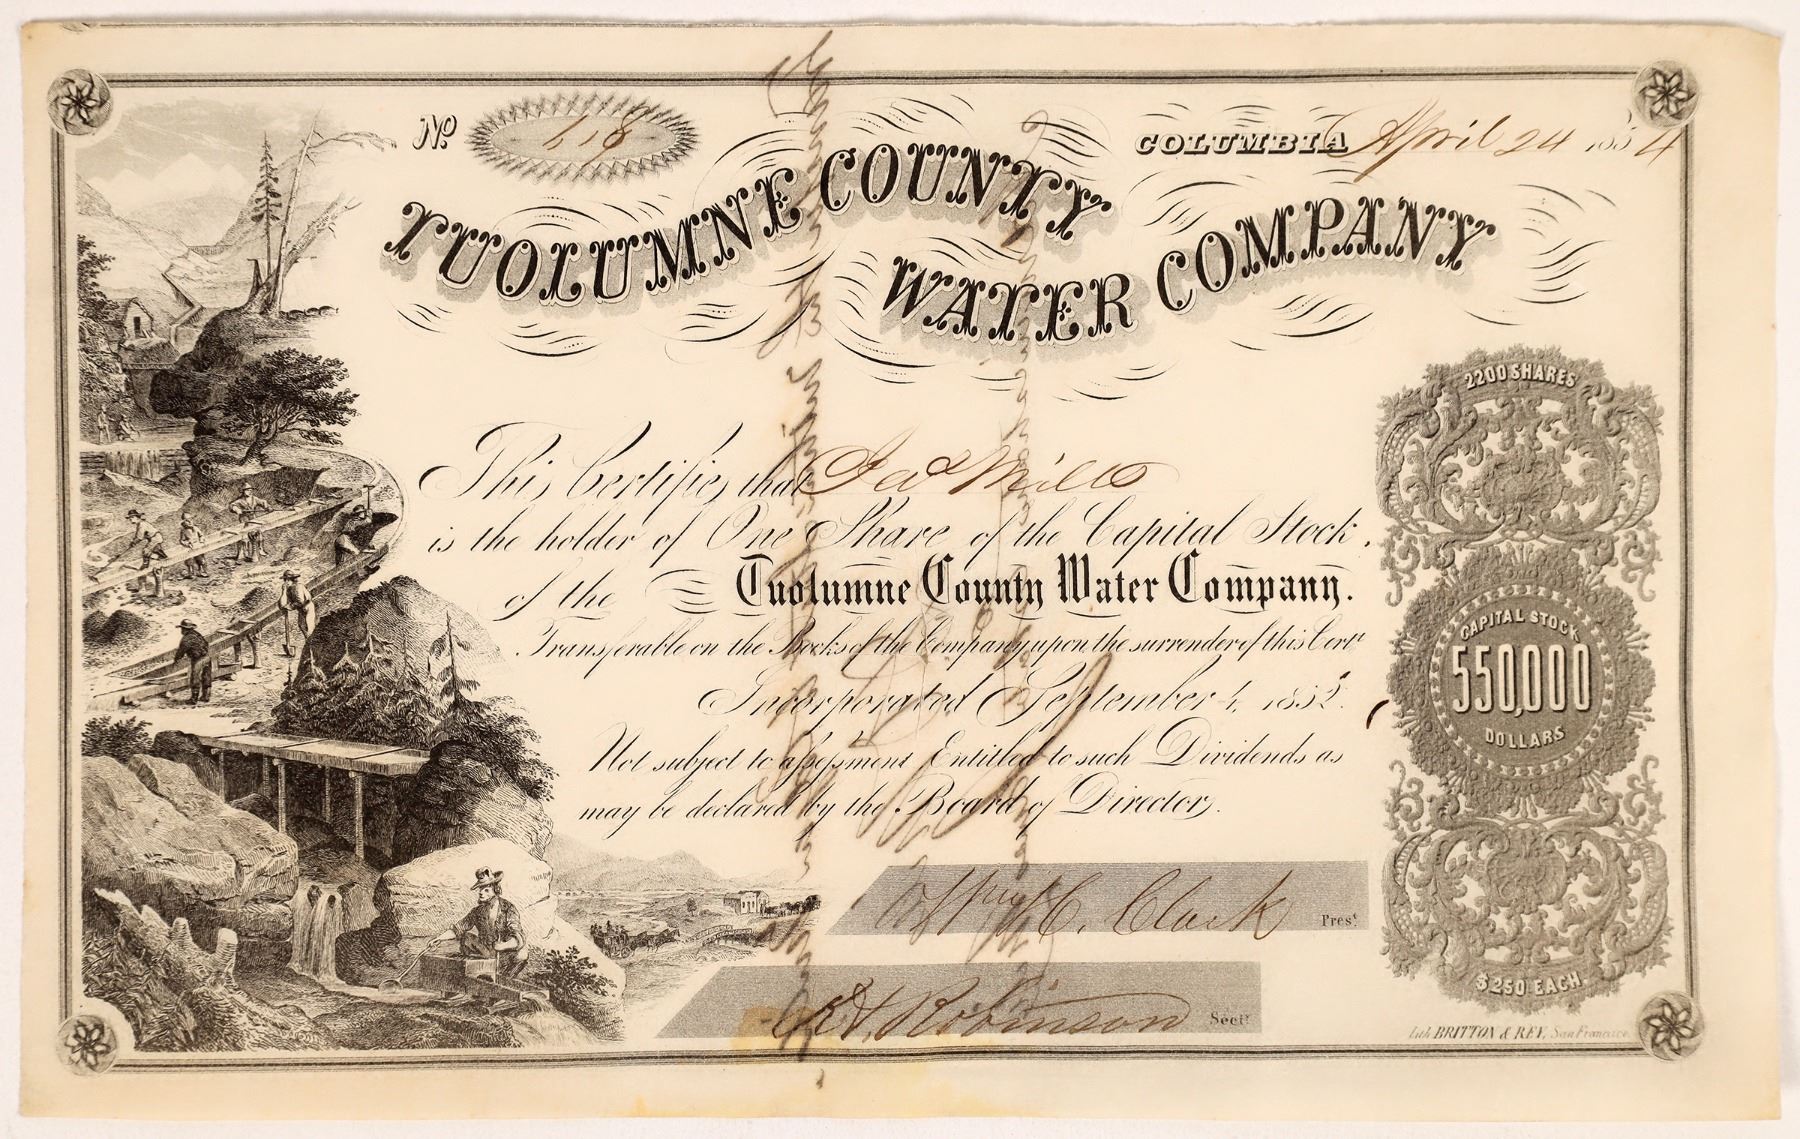 No. 618
COLUMBIA April 24 1854
TUOLUMNE COUNTY
WATER COMPANY
2200 SHARES
This Certifies that Jas Mills
is the holder of One Share of the Capital Stock
of the Tuolumne County Water Company.
Transferable on the Books of the Company upon the surrender of this Certt
Incorporated September 4, 1852.
CAPITAL STOCK
550,000
DOLLARS
Not subject to assessment Entitled to such Dividends as
may be declared by the Board of Directors.
C. Clark Prest
Robinson Secty
$250 EACH.
Lith. BRITTON & REY, San Francisco.